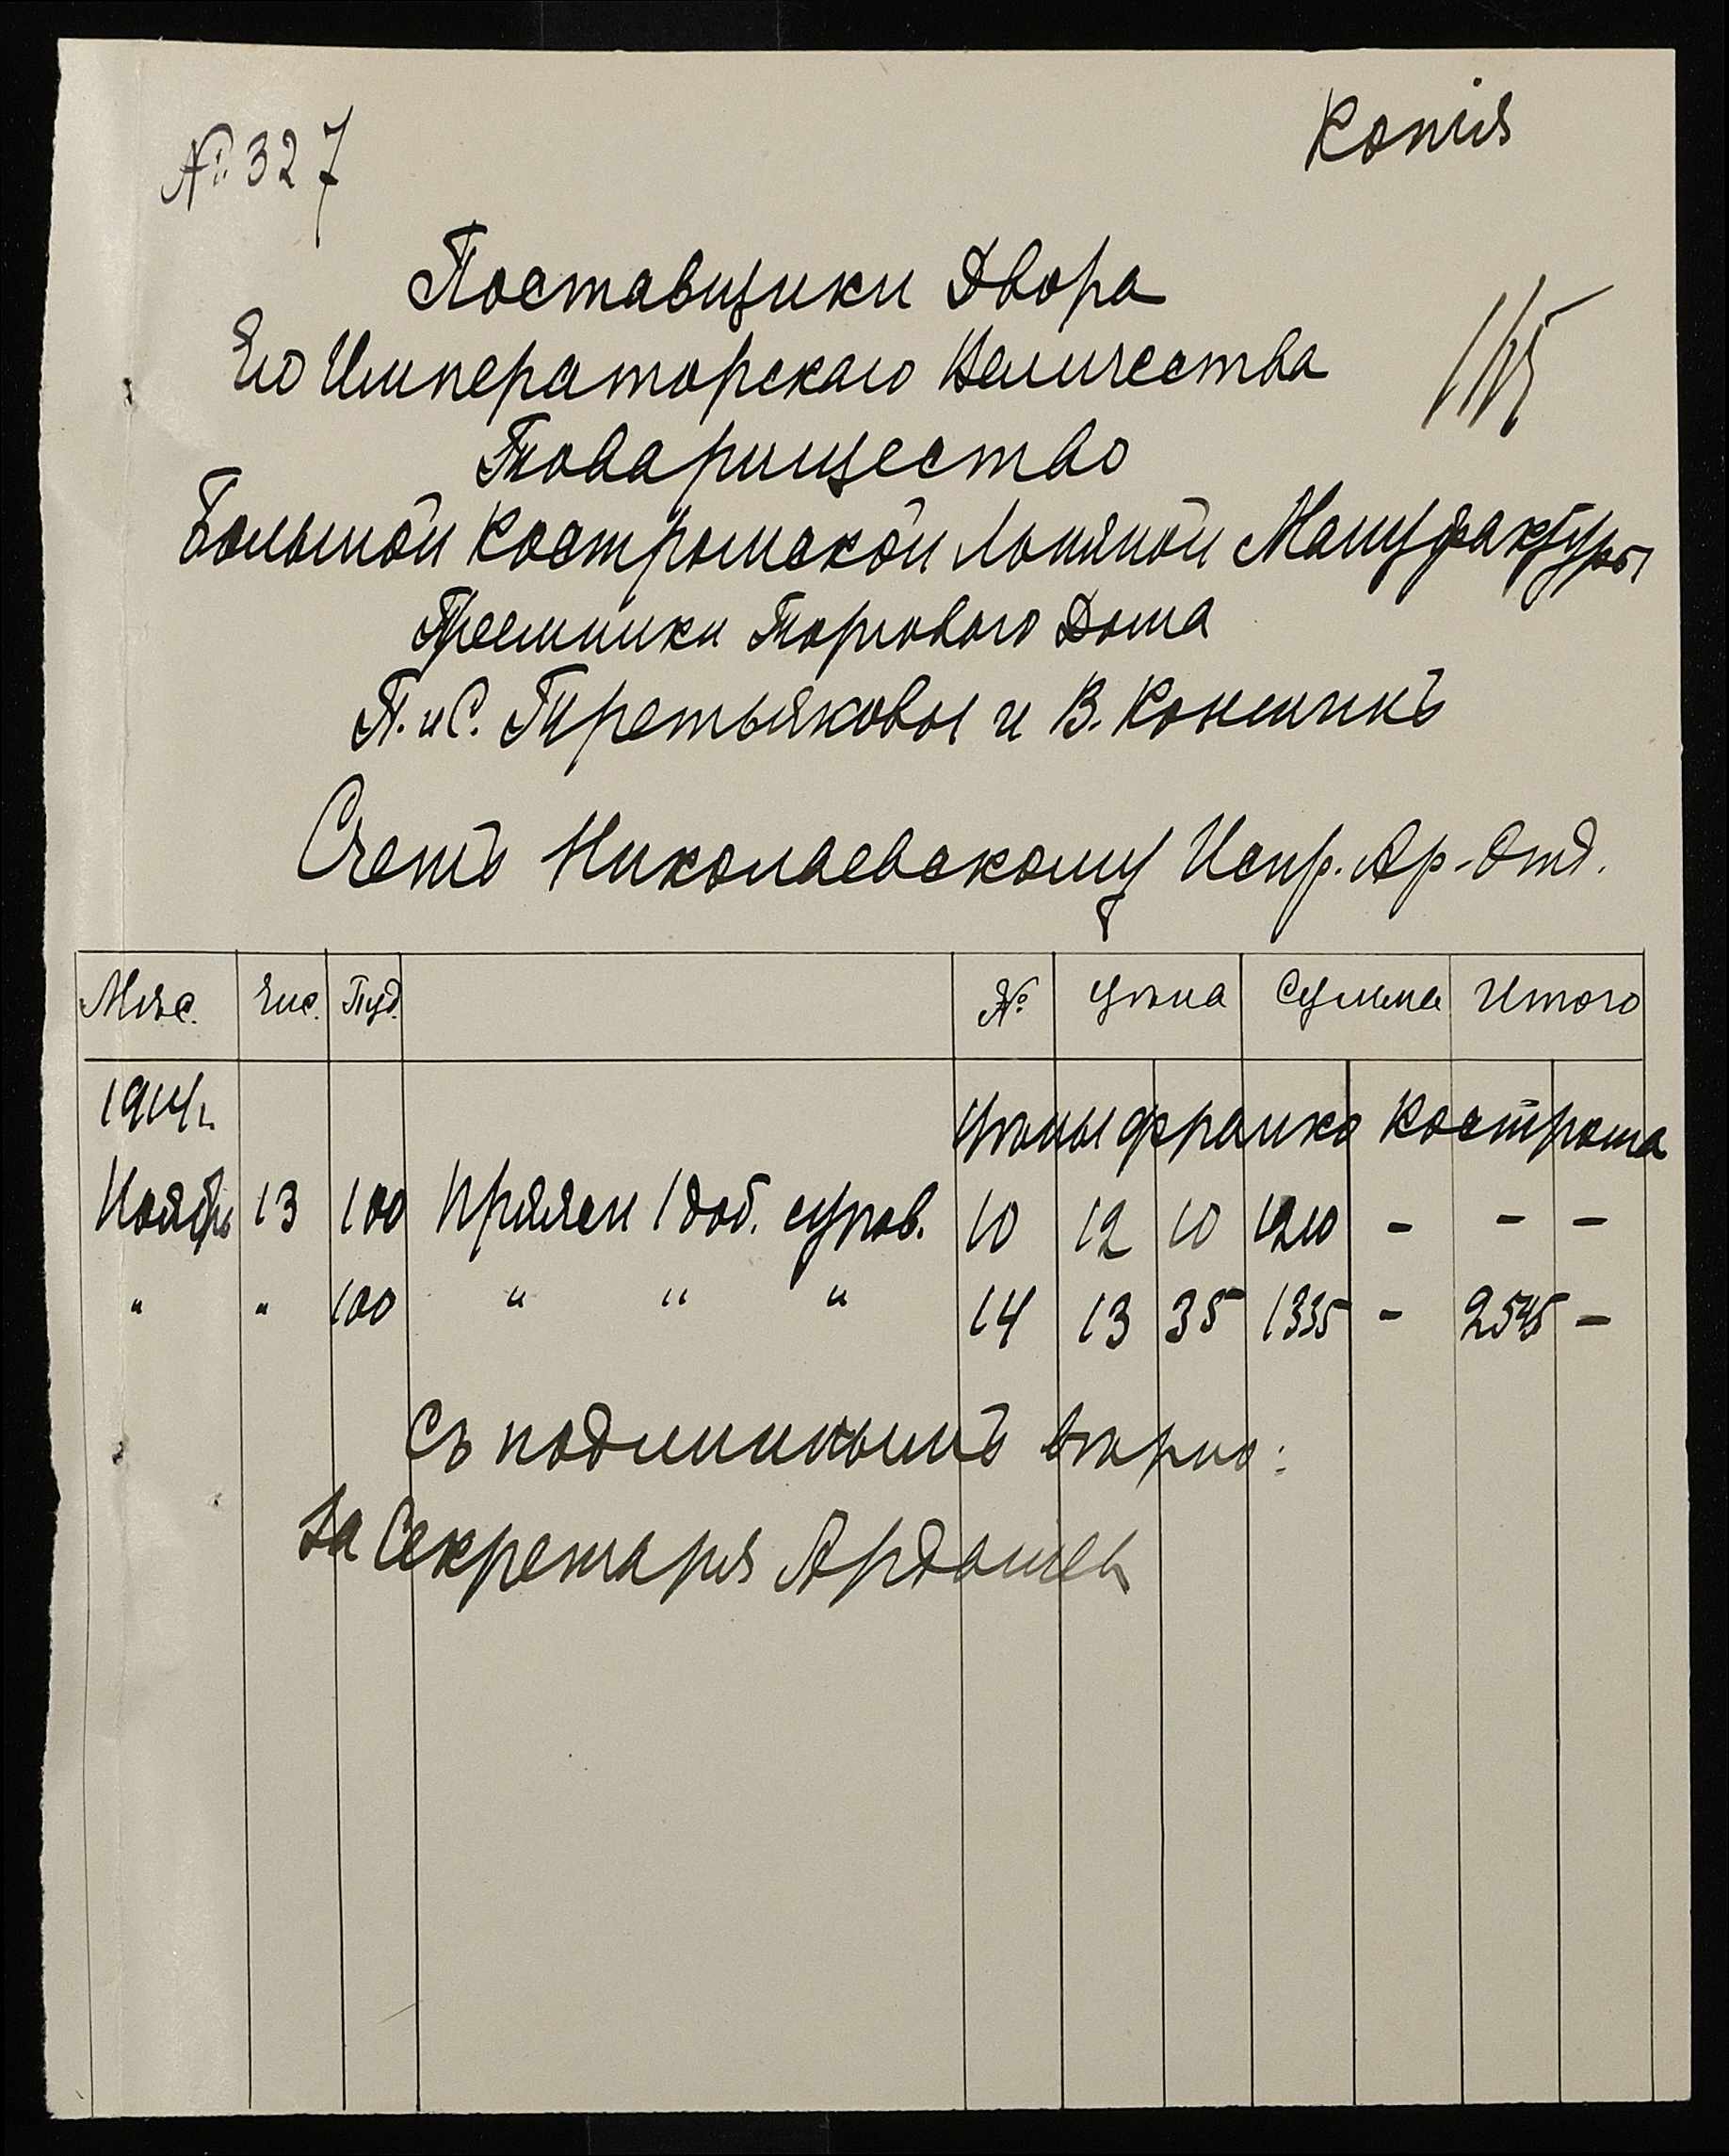 № 327
Копія
Поставщики Двора
Его Императорскаго Величества
Товарищество
Большой Костромской Льняной Мануфактуры
Преемники Торговаго Дома
П. и С. Третьяковы и В. Коншинъ
Счетъ Николаевскому Испр. Ар-Отд.
Мѣс. Чис. Пуд. № Цѣна Сумма Итого
1914 г. Цѣны франко Кострома
Ноябрь 13 100 Пряжи 1 доб. суров. 10 12 10 1210 - - -
" " 100 " " " 14 13 35 1335 - 2545 -
Съ подлиннымъ вѣрно:
За Секретаря